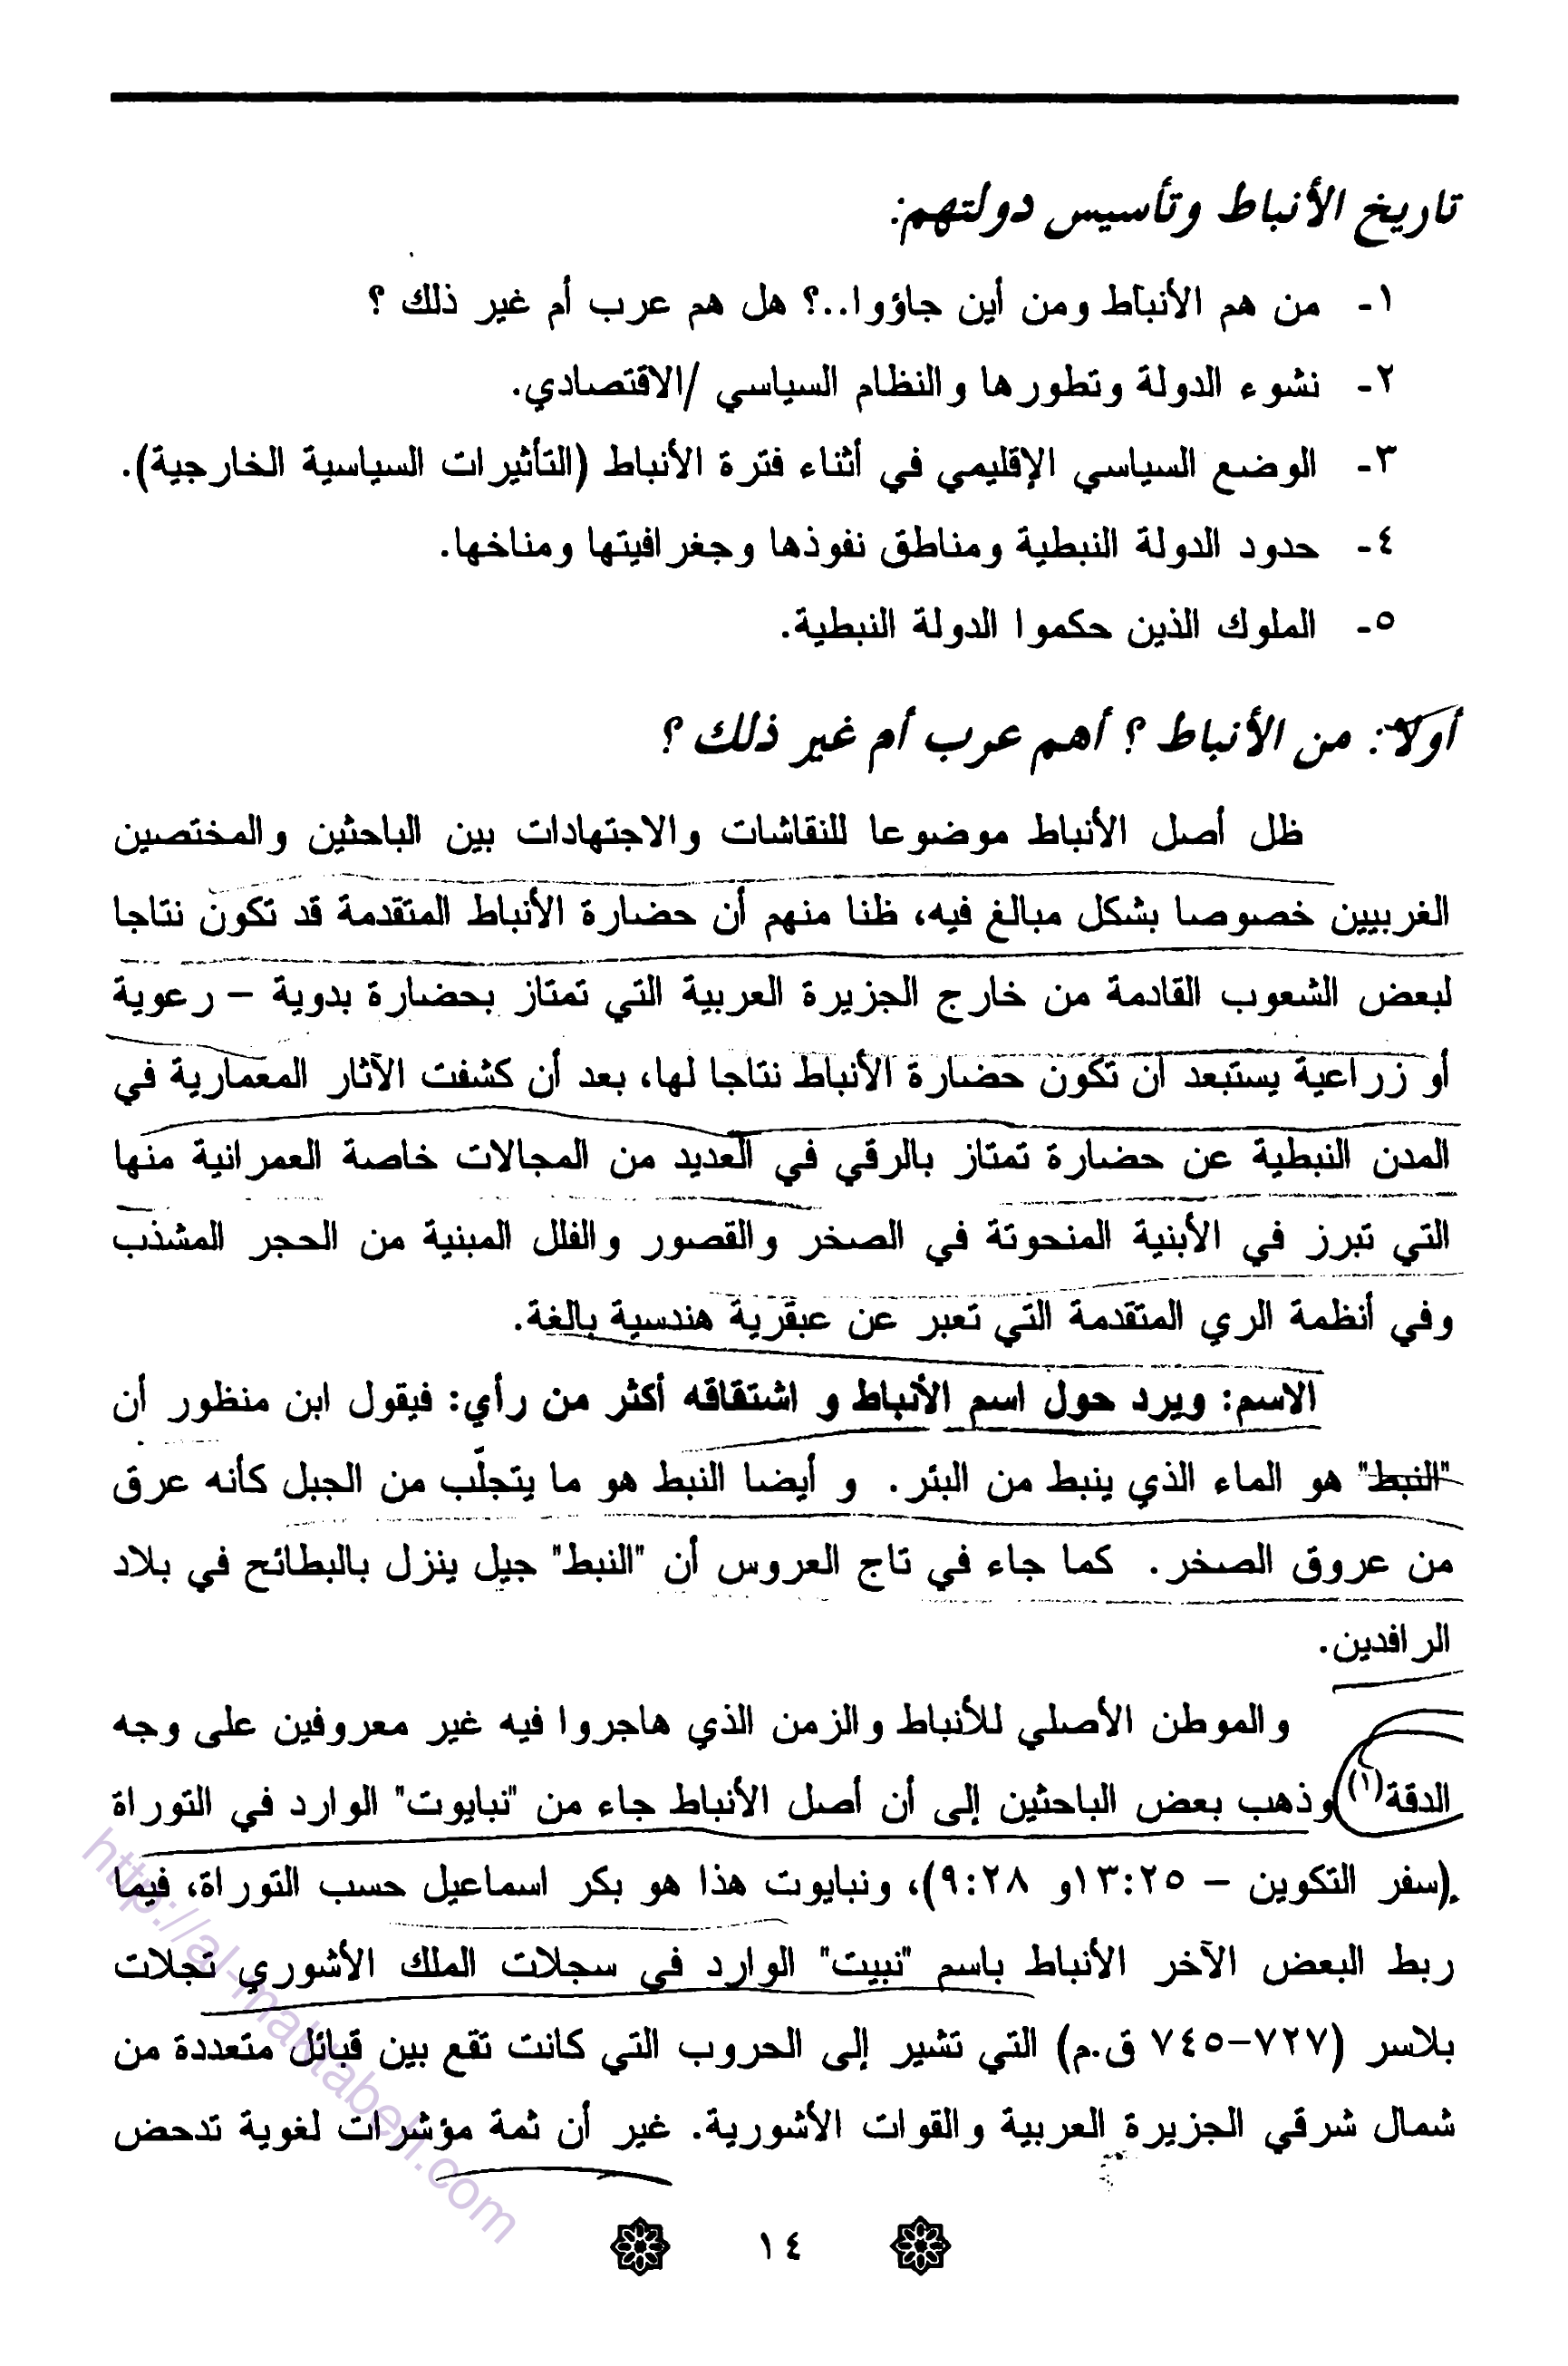 تاريخ الأنباط وتأسيس دولتهم:
١- من هم الأنباط ومن أين جاؤوا..؟ هل هم عرب أم غير ذلك ؟
٢- نشوء الدولة وتطورها والنظام السياسي /الاقتصادي.
٣- الوضع السياسي الإقليمي في أثناء فترة الأنباط (التأثيرات السياسية الخارجية).
٤- حدود الدولة النبطية ومناطق نفوذها وجغرافيتها ومناخها.
٥- الملوك الذين حكموا الدولة النبطية.
أولا: من الأنباط ؟ أهم عرب أم غير ذلك ؟
ظل أصل الأنباط موضوعا للنقاشات والاجتهادات بين الباحثين والمختصين
الغربيين خصوصا بشكل مبالغ فيه، ظنا منهم أن حضارة الأنباط المتقدمة قد تكون نتاجا
لبعض الشعوب القادمة من خارج الجزيرة العربية التي تمتاز بحضارة بدوية – رعوية
أو زراعية يستبعد أن تكون حضارة الأنباط نتاجا لها، بعد أن كشفت الآثار المعمارية في
المدن النبطية عن حضارة تمتاز بالرقي في العديد من المجالات خاصة العمرانية منها
التي تبرز في الأبنية المنحوتة في الصخر والقصور والفلل المبنية من الحجر المشذب
وفي أنظمة الري المتقدمة التي تعبر عن عبقرية هندسية بالغة.
الاسم: ويرد حول اسم الأنباط و اشتقاقه أكثر من رأي: فيقول ابن منظور أن
"النبط" هو الماء الذي ينبط من البئر. و أيضا النبط هو ما يتجلّب من الجبل كأنه عرق
من عروق الصخر. كما جاء في تاج العروس أن "النبط" جيل ينزل بالبطائح في بلاد
الرافدين.
والموطن الأصلي للأنباط والزمن الذي هاجروا فيه غير معروفين على وجه
الدقة(١) وذهب بعض الباحثين إلى أن أصل الأنباط جاء من "نبايوت" الوارد في التوراة
(سفر التكوين – ١٣:٢٥ و ٩:٢٨)، ونبايوت هذا هو بكر اسماعيل حسب التوراة، فيما
ربط البعض الآخر الأنباط باسم "نبيت" الوارد في سجلات الملك الأشوري تجلات
بلاسر (٧٢٧–٧٤٥ ق.م) التي تشير إلى الحروب التي كانت تقع بين قبائل متعددة من
شمال شرقي الجزيرة العربية والقوات الأشورية. غير أن ثمة مؤشرات لغوية تدحض
١٤
http://al-maktabeh.com